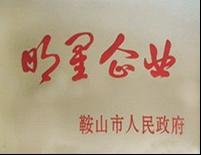 明星企业
鞍山市人民政府